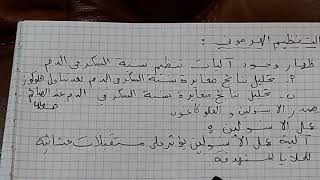 التنظيم الهرموني :
إظهار وجود آليات تنظيم نسبة السكر في الدم
أ- تحليل نتائج معايرة نسبة السكر في الدم بعد تناول الغلوكوز
ب- تحليل نتائج معايرة نسبة السكر في الدم عند الصائم
مصدر الأنسولين و الغلوكاغون
عمل الأنسولين
آلية عمل الأنسولين يؤثر على مستقبلات غشائية
للخلايا المستهدفة